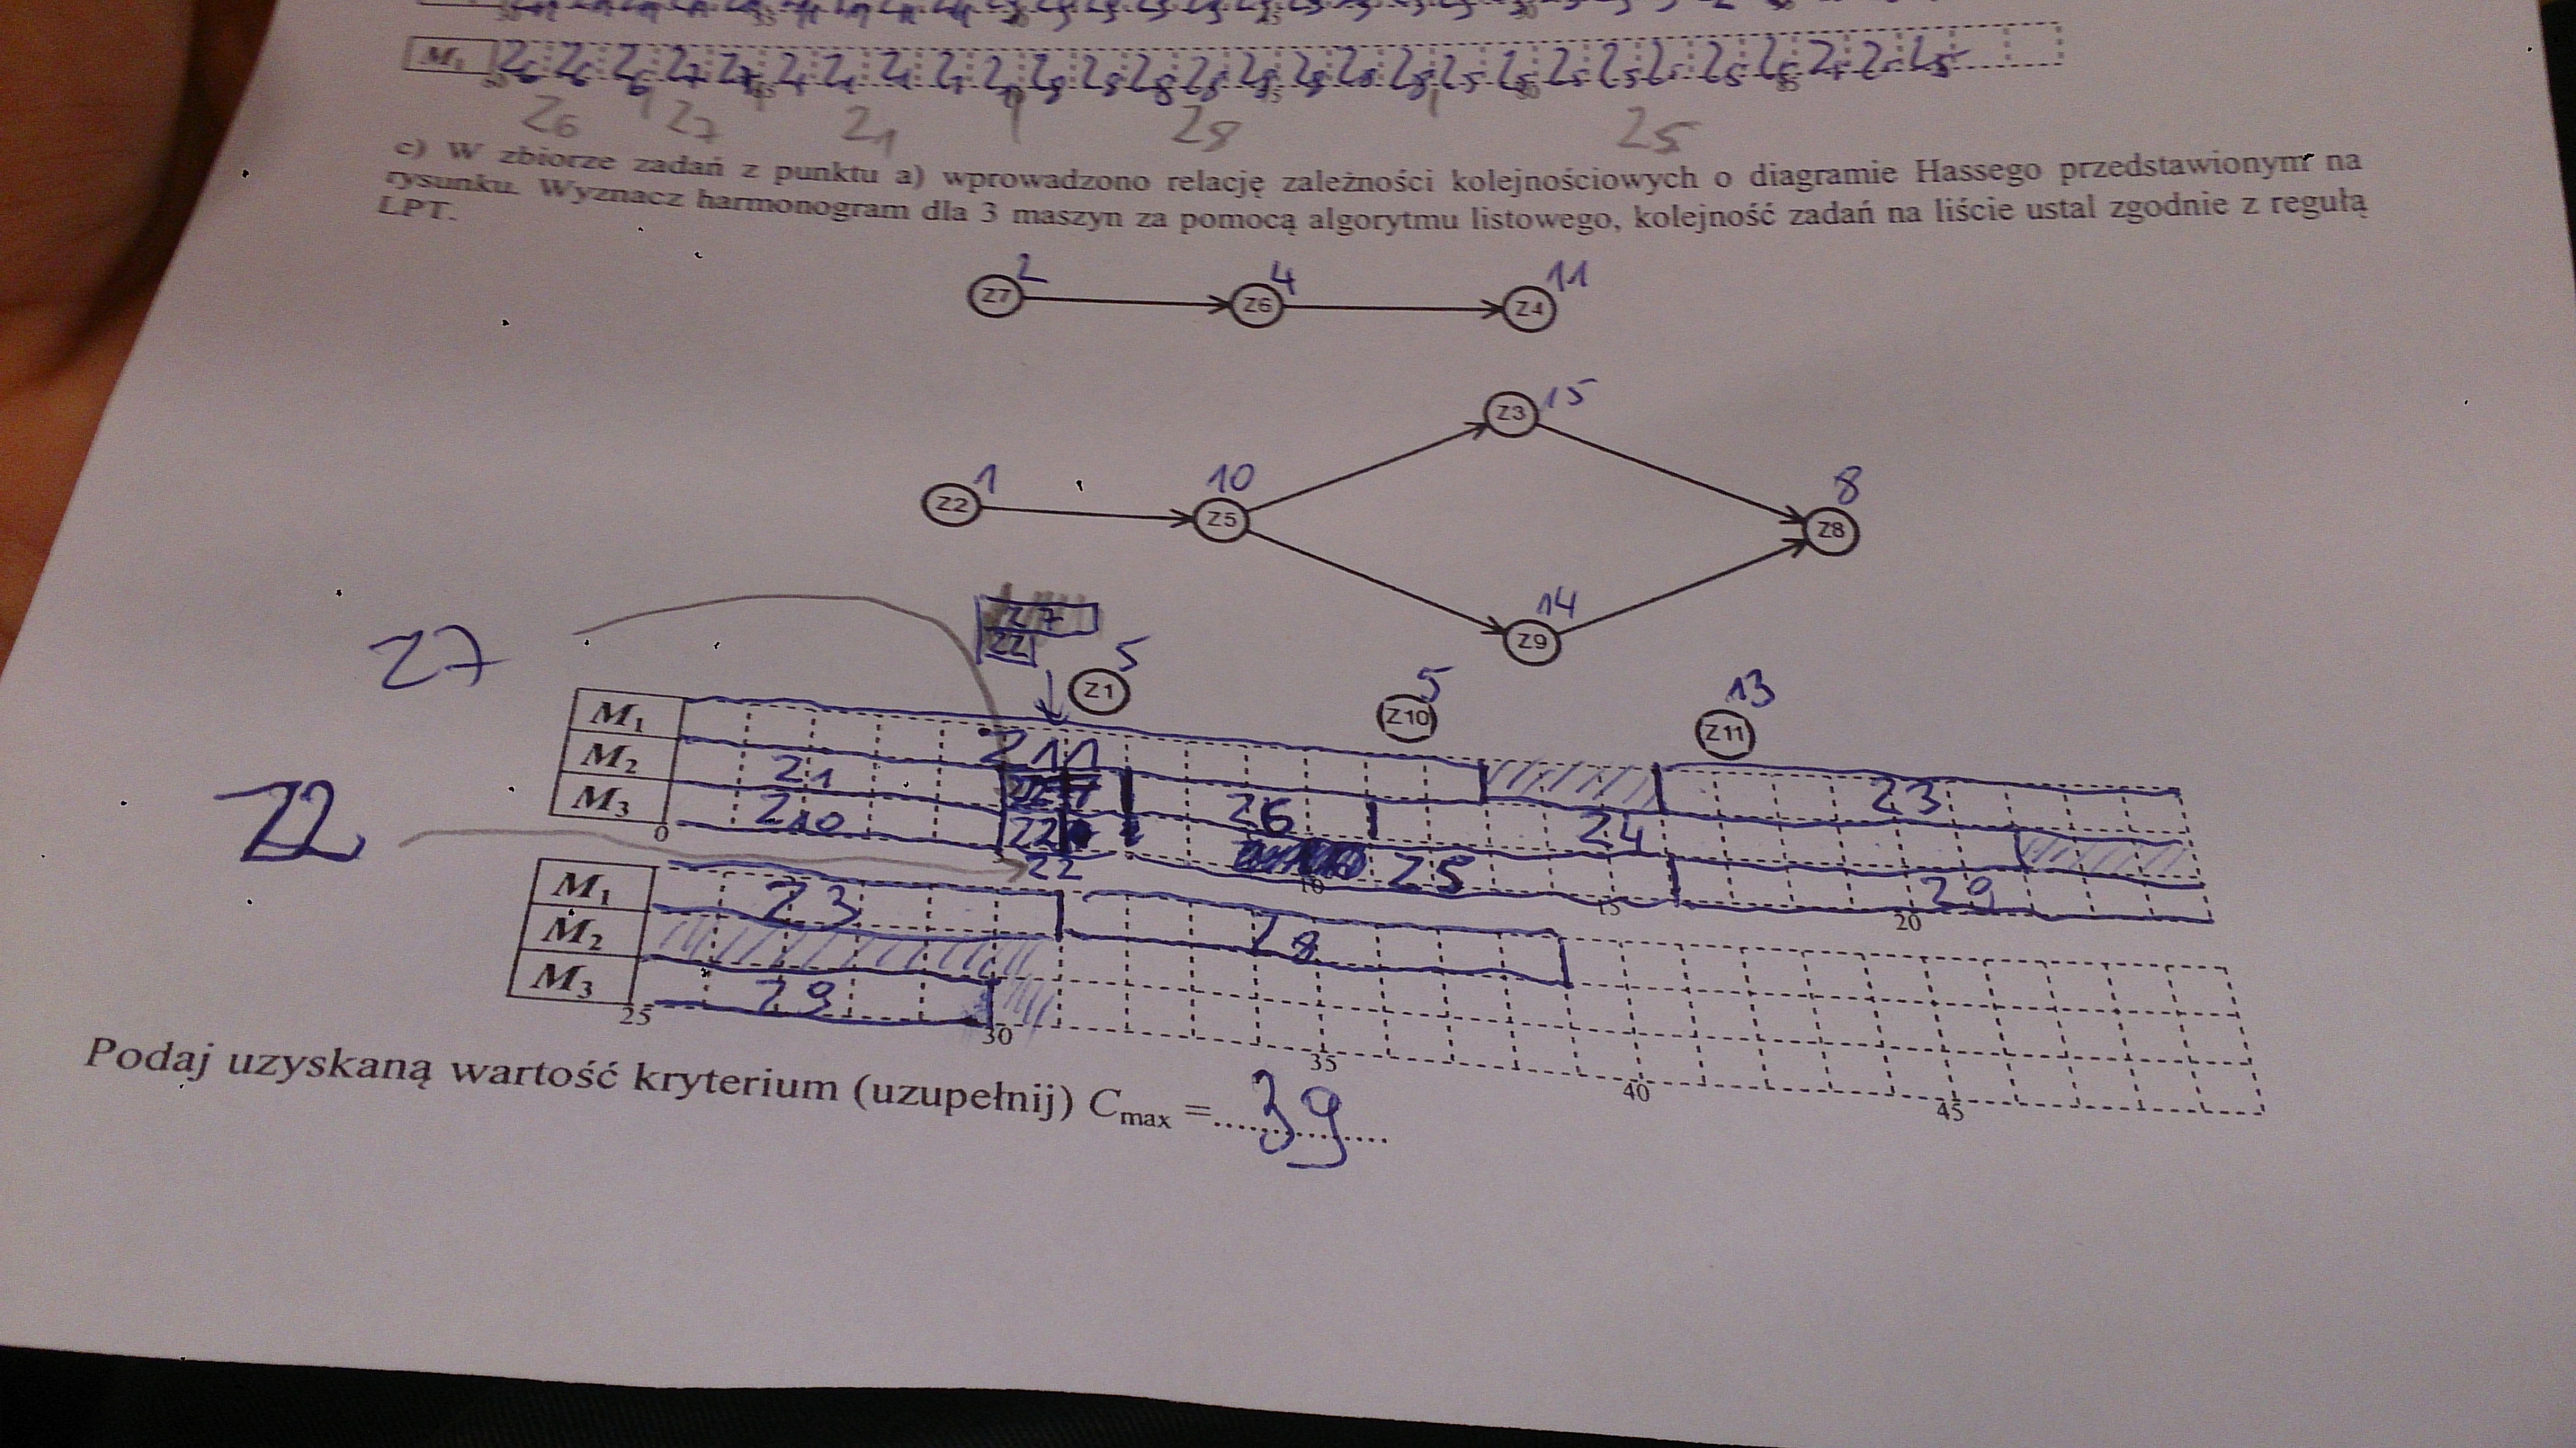 M₁ Z6 Z6 Z6 Z7 Z7 Z1 Z1 Z1 Z1 Z1 Z8 Z8 Z8 Z8 Z8 Z8 Z8 Z8 Z5 Z5 Z5 Z5 Z5 Z5 Z5 Z5 Z5 Z5
Z6 Z7 Z1 Z8 Z5
c) W zbiorze zadań z punktu a) wprowadzono relację zależności kolejnościowych o diagramie Hassego przedstawionym na
rysunku. Wyznacz harmonogram dla 3 maszyn za pomocą algorytmu listowego, kolejność zadań na liście ustal zgodnie z regułą
LPT.
2 4 11
Z7 Z6 Z4
15
Z3
1 10 8
Z2 Z5 Z8
14
Z9
Z7
Z7
Z2
5 5 13
Z1 Z10 Z11
M₁ Z11 Z3
M₂ Z1 Z7 Z6 Z4
M₃ Z10 Z2 Z5 Z9
Z2
Z2
0 5 10 15 20
M₁ Z3 Z8
M₂
M₃ Z9
25 30 35 40 45
Podaj uzyskaną wartość kryterium (uzupełnij) Cmax =....39....